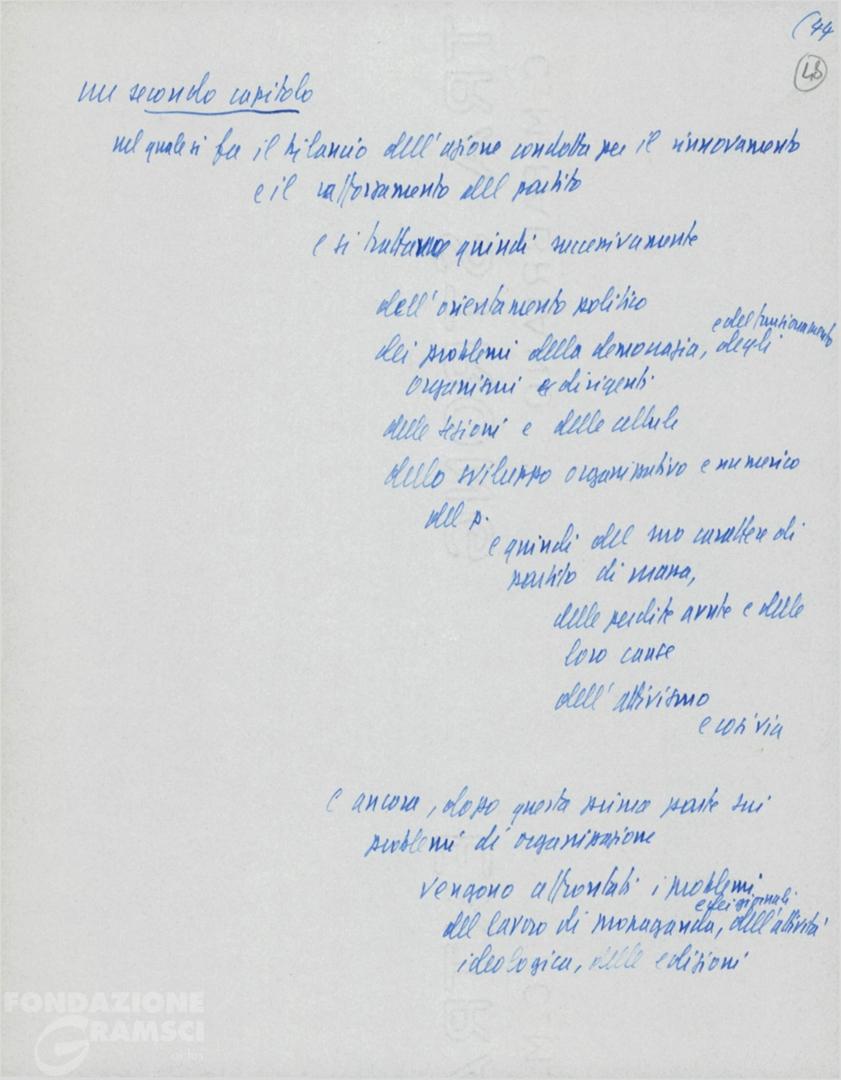 (44
48
un secondo capitolo
nel quale si fa il bilancio dell'azione condotta per il rinnovamento
e il rafforzamento del partito
e si trattano quindi successivamente
dell'orientamento politico
e del funzionamento
dei problemi della democrazia, degli
organismi dirigenti
delle sezioni e delle cellule
dello sviluppo organizzativo e numerico
del p.
e quindi del suo carattere di
partito di massa,
delle perdite avute e delle
loro cause
dell'attivismo
e così via
e ancora, dopo questa prima parte sui
problemi di organizzazione
vengono affrontati i problemi
e dei giornali
del lavoro di propaganda, dell'attività
ideologica, delle edizioni
FONDAZIONE
GRAMSCI
onlus